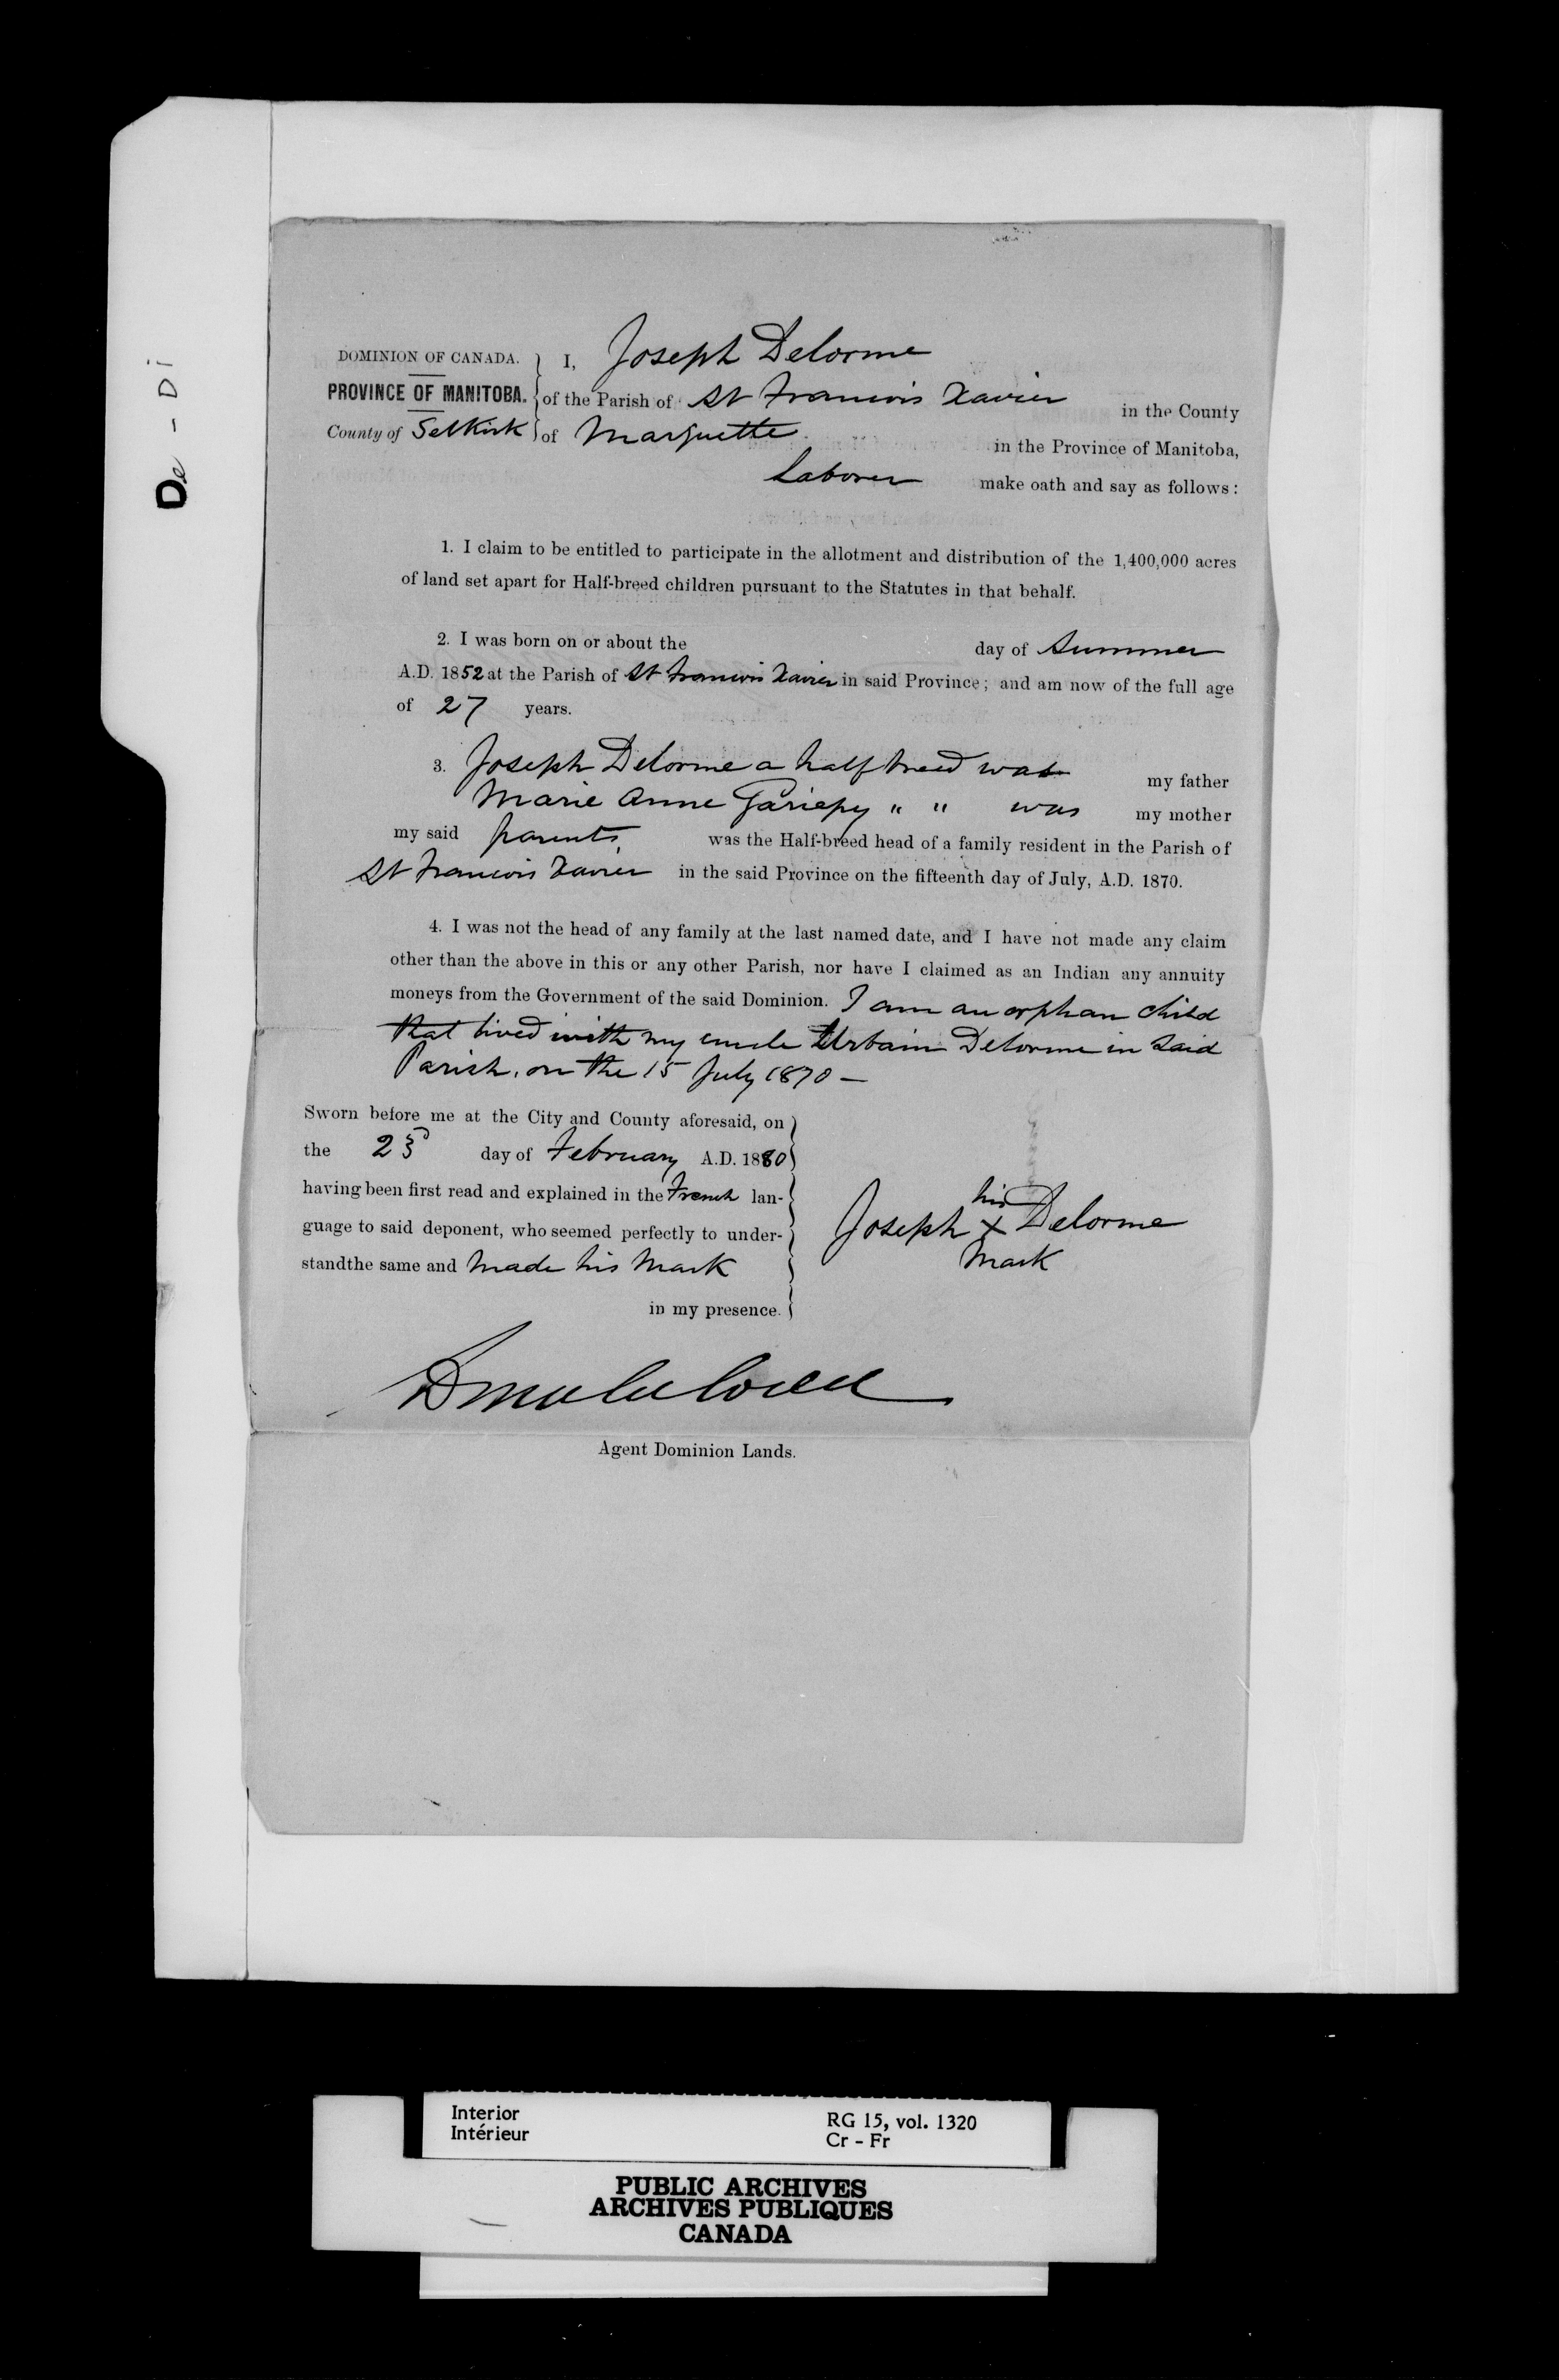 De - Di
DOMINION OF CANADA.
PROVINCE OF MANITOBA.
County of Selkirk
I, Joseph Delorme
of the Parish of St Francois Xavier in the County
of Marquette in the Province of Manitoba,
Laborer make oath and say as follows:
1. I claim to be entitled to participate in the allotment and distribution of the 1,400,000 acres
of land set apart for Half-breed children pursuant to the Statutes in that behalf.
2. I was born on or about the day of Summer
A.D. 1852 at the Parish of St Francois Xavier in said Province; and am now of the full age
of 27 years.
3. Joseph Delorme a half breed was my father
Marie Anne Gariepy " " was my mother
my said parents was the Half-breed head of a family resident in the Parish of
St Francois Xavier in the said Province on the fifteenth day of July, A.D. 1870.
4. I was not the head of any family at the last named date, and I have not made any claim
other than the above in this or any other Parish, nor have I claimed as an Indian any annuity
moneys from the Government of the said Dominion. I am an orphan child
that lived with my uncle Urbain Delorme in said
Parish, on the 15 July 1870 -
Sworn before me at the City and County aforesaid, on
the 23d day of February A.D. 1880
having been first read and explained in the French lan-
guage to said deponent, who seemed perfectly to under-
standthe same and made his mark
in my presence.
his
Joseph X Delorme
mark
Agent Dominion Lands.
Interior
Intérieur
RG 15, vol. 1320
Cr - Fr
PUBLIC ARCHIVES
ARCHIVES PUBLIQUES
CANADA